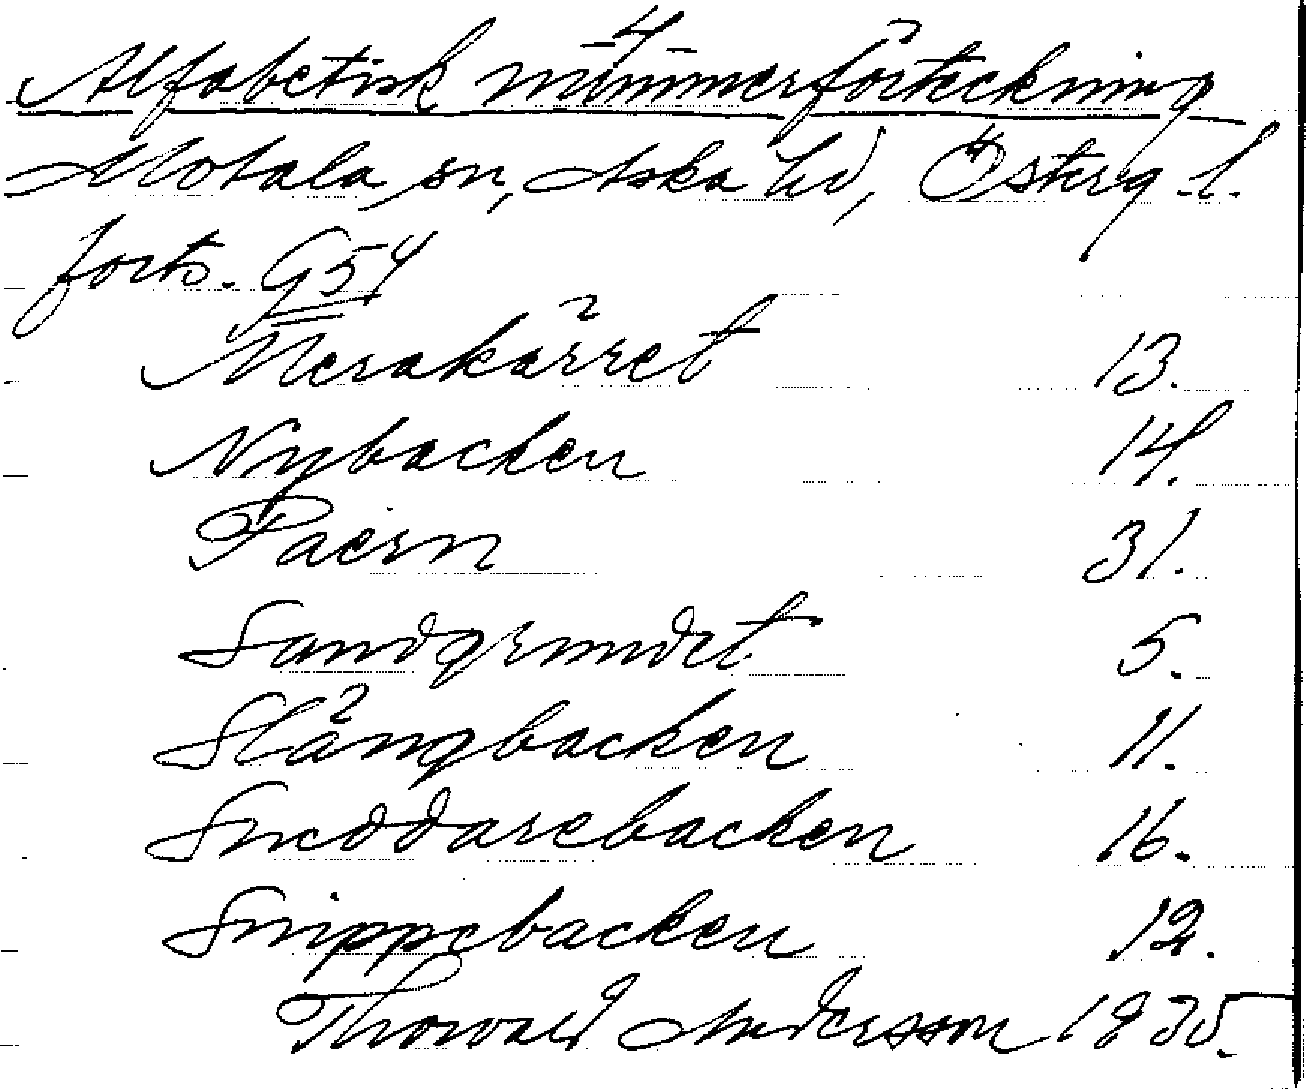 -4-
Alfabetisk nummerförteckning
Motala sn, Aska hd, Österg.l.
forts. G54
Merakärret 13.
Nybacken 14.
Paern 31.
Sandgrundet 5.
Slångbacken 11.
Sneddarebacken 16.
Snippebacken 12.
Thorvald Andersson 1935.